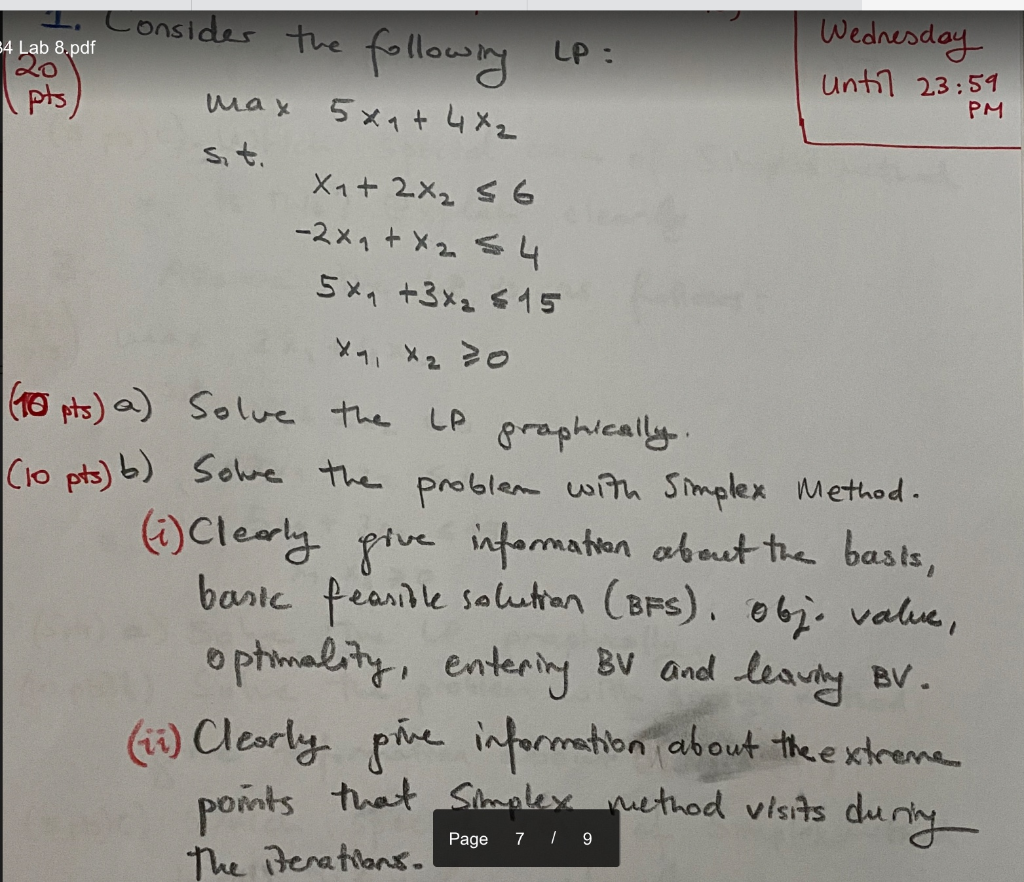 1. Consider the following LP:
Wednesday
34 Lab 8.pdf
(20
pts)
until 23:59
PM
max 5x₁ + 4x₂
s.t.
x₁ + 2x₂ ≤ 6
-2x₁ + x₂ ≤ 4
5x₁ + 3x₂ ≤ 15
x₁, x₂ ≥ 0
(10 pts) a) Solve the LP graphically.
(10 pts) b) Solve the problem with Simplex Method.
(i) Clearly give information about the basis,
basic feasible solution (BFS), obj. value,
optimality, entering BV and leaving BV.
(ii) Clearly give information about the extreme
points that Simplex method visits during
The iterations.
Page 7 / 9